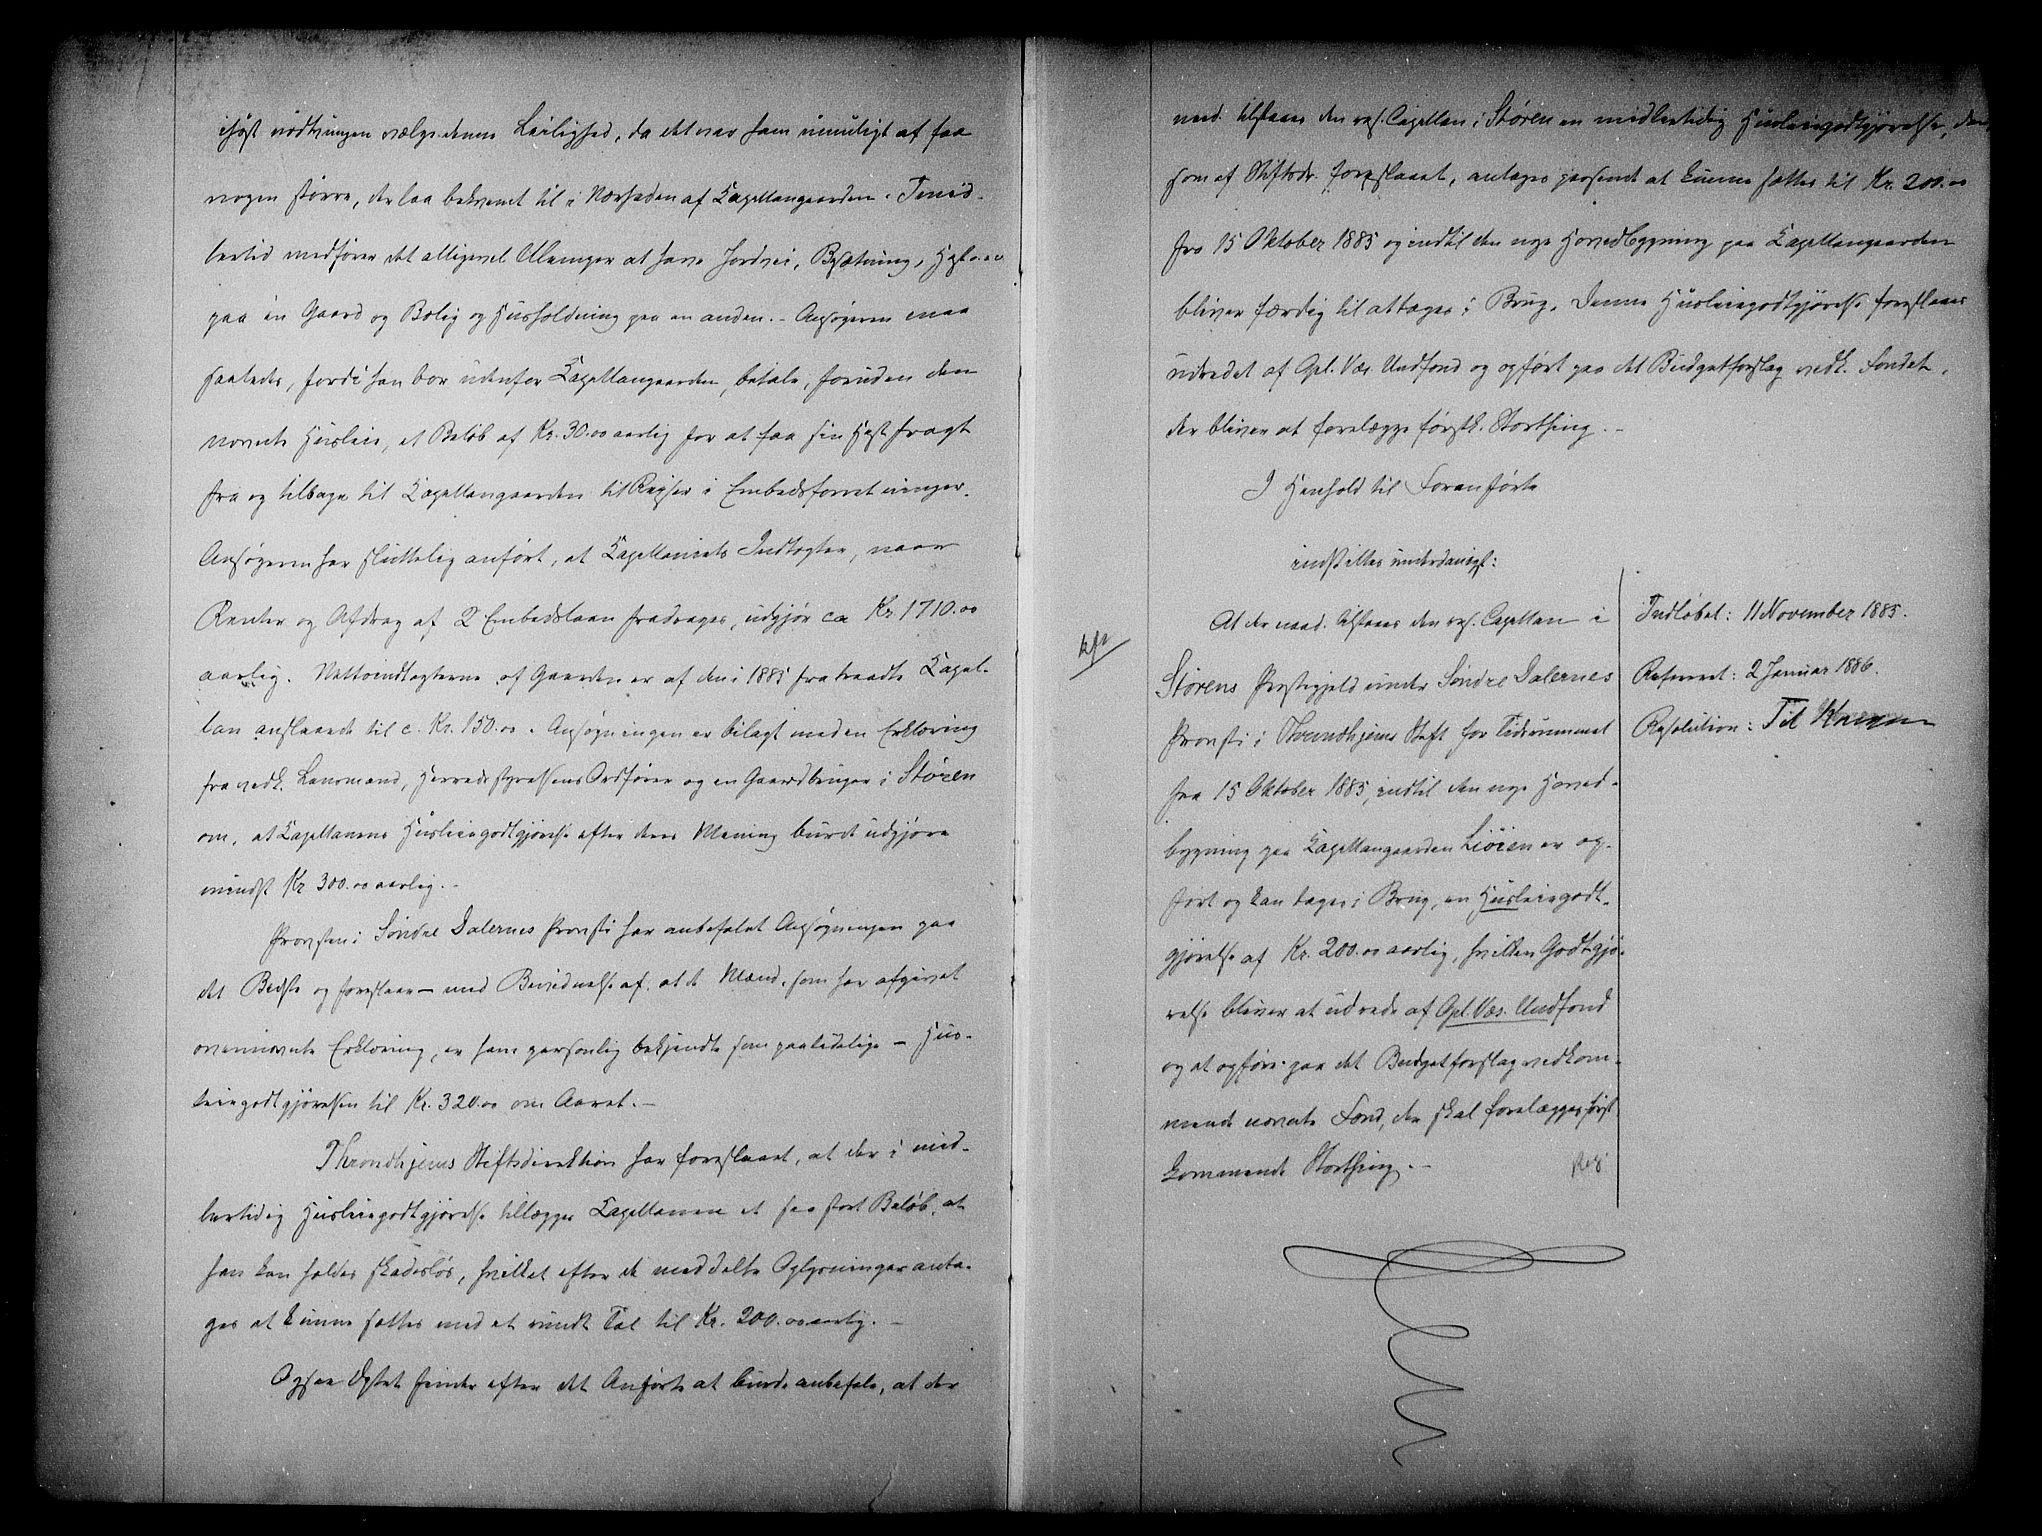 ihøst nødtvungen vælge denne Leilighed, da det var ham umuligt at faa
nogen større, der laa bekvemt til i Nærheden af Capellangaarden. Imid-
lertid medfører det alligevel Ulemper at have Jordvei, Besætning, Hest o.s.v.
paa én Gaard og Bolig og Husholdning paa en anden. - Ansøgeren maa
saaledes, fordi han bor udenfor Capellangaarden, betale, foruden den
nævnte Husleie, et Beløb af Kr. 30.00 aarlig for at faa sin Hest bragt
fra og tilbage til Capellangaarden til Reiser i Embedsforretninger.
Ansøgeren har sluttelig anført, at Capellaniets Indtægter, naar
Renter og Afdrag af 2 Embedslaan fradrages, udgjør ca Kr 1710.00
aarlig. Nettoindtægterne af Gaarden er af den i 1885 fratraadte Capel-
lan anslaaede til c. Kr. 150.00. Ansøgningen er bilagt med en Erklæring
fra vedk. Lensmand, Herredsstyrelsens Ordfører og en Gaardbruger i Støren
om, at Capellanens Husleiegodtgjørelse efter deres Mening burde udgjøre
mindst Kr. 300.00 aarlig. -
Provsten i Søndre Dalernes Provsti har anbefalet Ansøgningen paa
det Bedste og foreslaar - med Bevidnelse af, at de Mænd, som har afgivet
ovennævnte Erklæring, er ham personlig bekjendte som paalidelige - Hus-
leiegodtgjørelsen til Kr. 320.00 om Aaret. -
Throndhjems Stiftsdirektion har foreslaaet, at der i mid-
lertidig Husleiegodtgjørelse tillægges Capellanen et saa stort Beløb, at
han kan holdes skadesløs, hvilket efter de meddelte Oplysninger anta-
ges at kunne sættes med et rundt Tal til Kr. 200.00 aarlig. -
Ogsaa Dptet finder efter det Anførte at burde anbefale, at der
naad. tilstaaes den res. Capellan i Støren en midlertidig Husleiegodtgjørelse, der,
som af Stiftsdir. foreslaaet, antages passende at kunne sættes til Kr. 200.00
fra 15 Oktober 1885 og indtil den nye Hovedbygning paa Capellangaarden
bliver færdig til at tages i Brug. Denne Husleiegodtgjørelse foreslaaes
udredet af Opl. Væs. Undfond og opført paa det Budgetforslag vedk. Fondet,
der bliver at forelægge førstk. Storthing. -
I Henhold til Foranførte
indstilles underdanigst:
At der naad. tilstaaes den res. Capellan i
Størens Præstegjeld under Søndre Dalernes
Provsti i Throndhjems Stift for Tidsrummet
fra 15 Oktober 1885, indtil den nye Hoved-
bygning paa Capellangaarden Liøien er op-
ført og kan tages i Brug, en Husleiegodt-
gjørelse af Kr. 200.00 aarlig, hvilken Godtgjø-
relse bliver at udrede af Opl. Væs. Undfond
og at opføre paa det Budgetforslag vedkom-
mende nævnte Fond, der skal forelægges først
kommende Storthing. -
Indløbet: 11 November 1885.
Refereret: 2 Januar 1886.
Resolution: Til